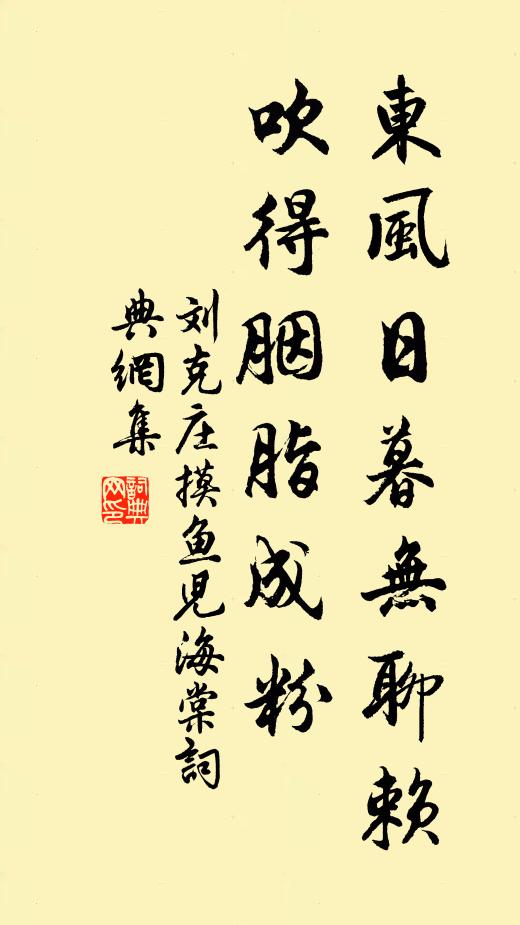 東風日暮無聊賴
吹得胭脂成粉
刘克庄摸鱼児海棠詞
典網集
詞典網印